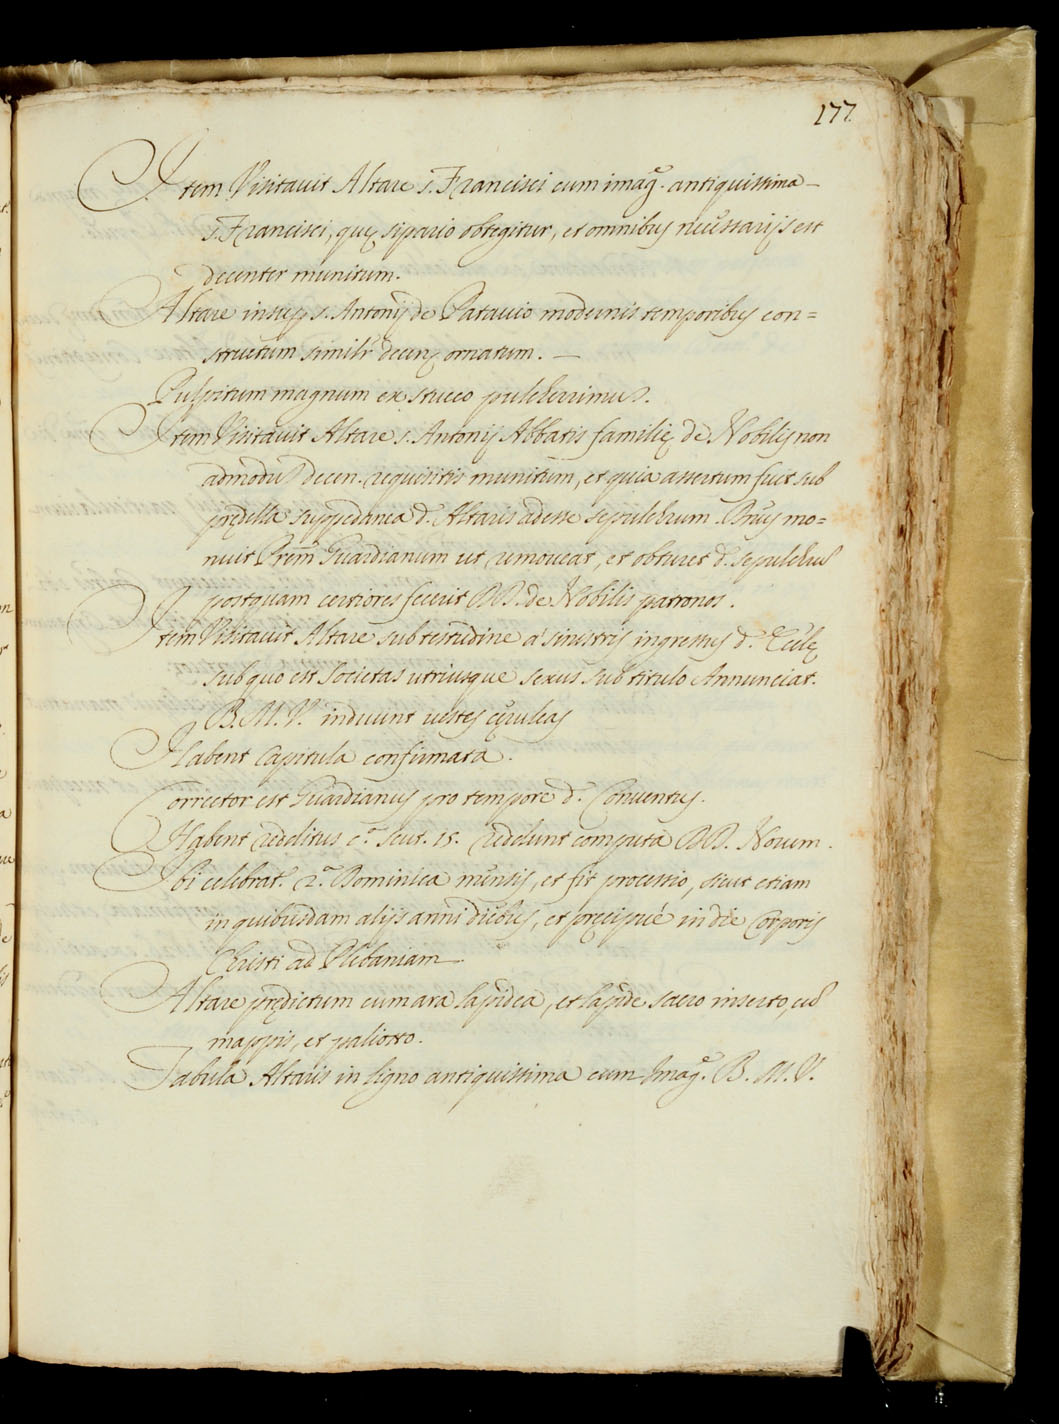 177
Item Visitavit Altare s. Francisci cum imag.e antiquissima
s. Francisci, quę sipario obtegitur, et omnibus necessarijs est
decenter munitum.
Altare insup. s. Antonij de Patavio modernis temporibus con=
structum similr decenr ornatum.
Pulpitum magnum ex stucco pulcherrimum.
Item Visitavit Altare s. Antonij Abbatis familię de Nobilis non
admodum decen. requisitis munitum, et quia assertum fuit sub
prędella suppedanea d. Altaris adesse sepulchrum
nuit Prem Guardianum ut removeat, et obturet d. sepulchrum
postquam certiores fecerit DD. de Nobilis patronos.
Item Visitavit Altare sub testudine à sinistris ingressus d.
sub quo est Societas utriusque sexus sub titulo Annunciat.
B. M. V. induunt vestes cęruleas
Habent Capitula confirmata.
Corrector est Guardianus pro tempore d. Conventus.
Habent redditus c.a scut. 15. reddunt computa DD. Novem.
Ibi celebrat. 2.a Dominica mensis, et fit processio, sicut etiam
in quibusdam alijs anni diebus, et pręcipué in die Corporis
Christi ad Plebaniam
Altare prędictum cum ara lapidea, et lapide sacro inserto, cum
mappis, et paliotto.
Tabula Altaris in ligno antiquissima cum Imag.e B. M. V.